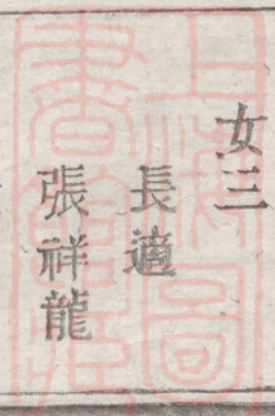 女三
長適
張祥龍
上海圖書館藏